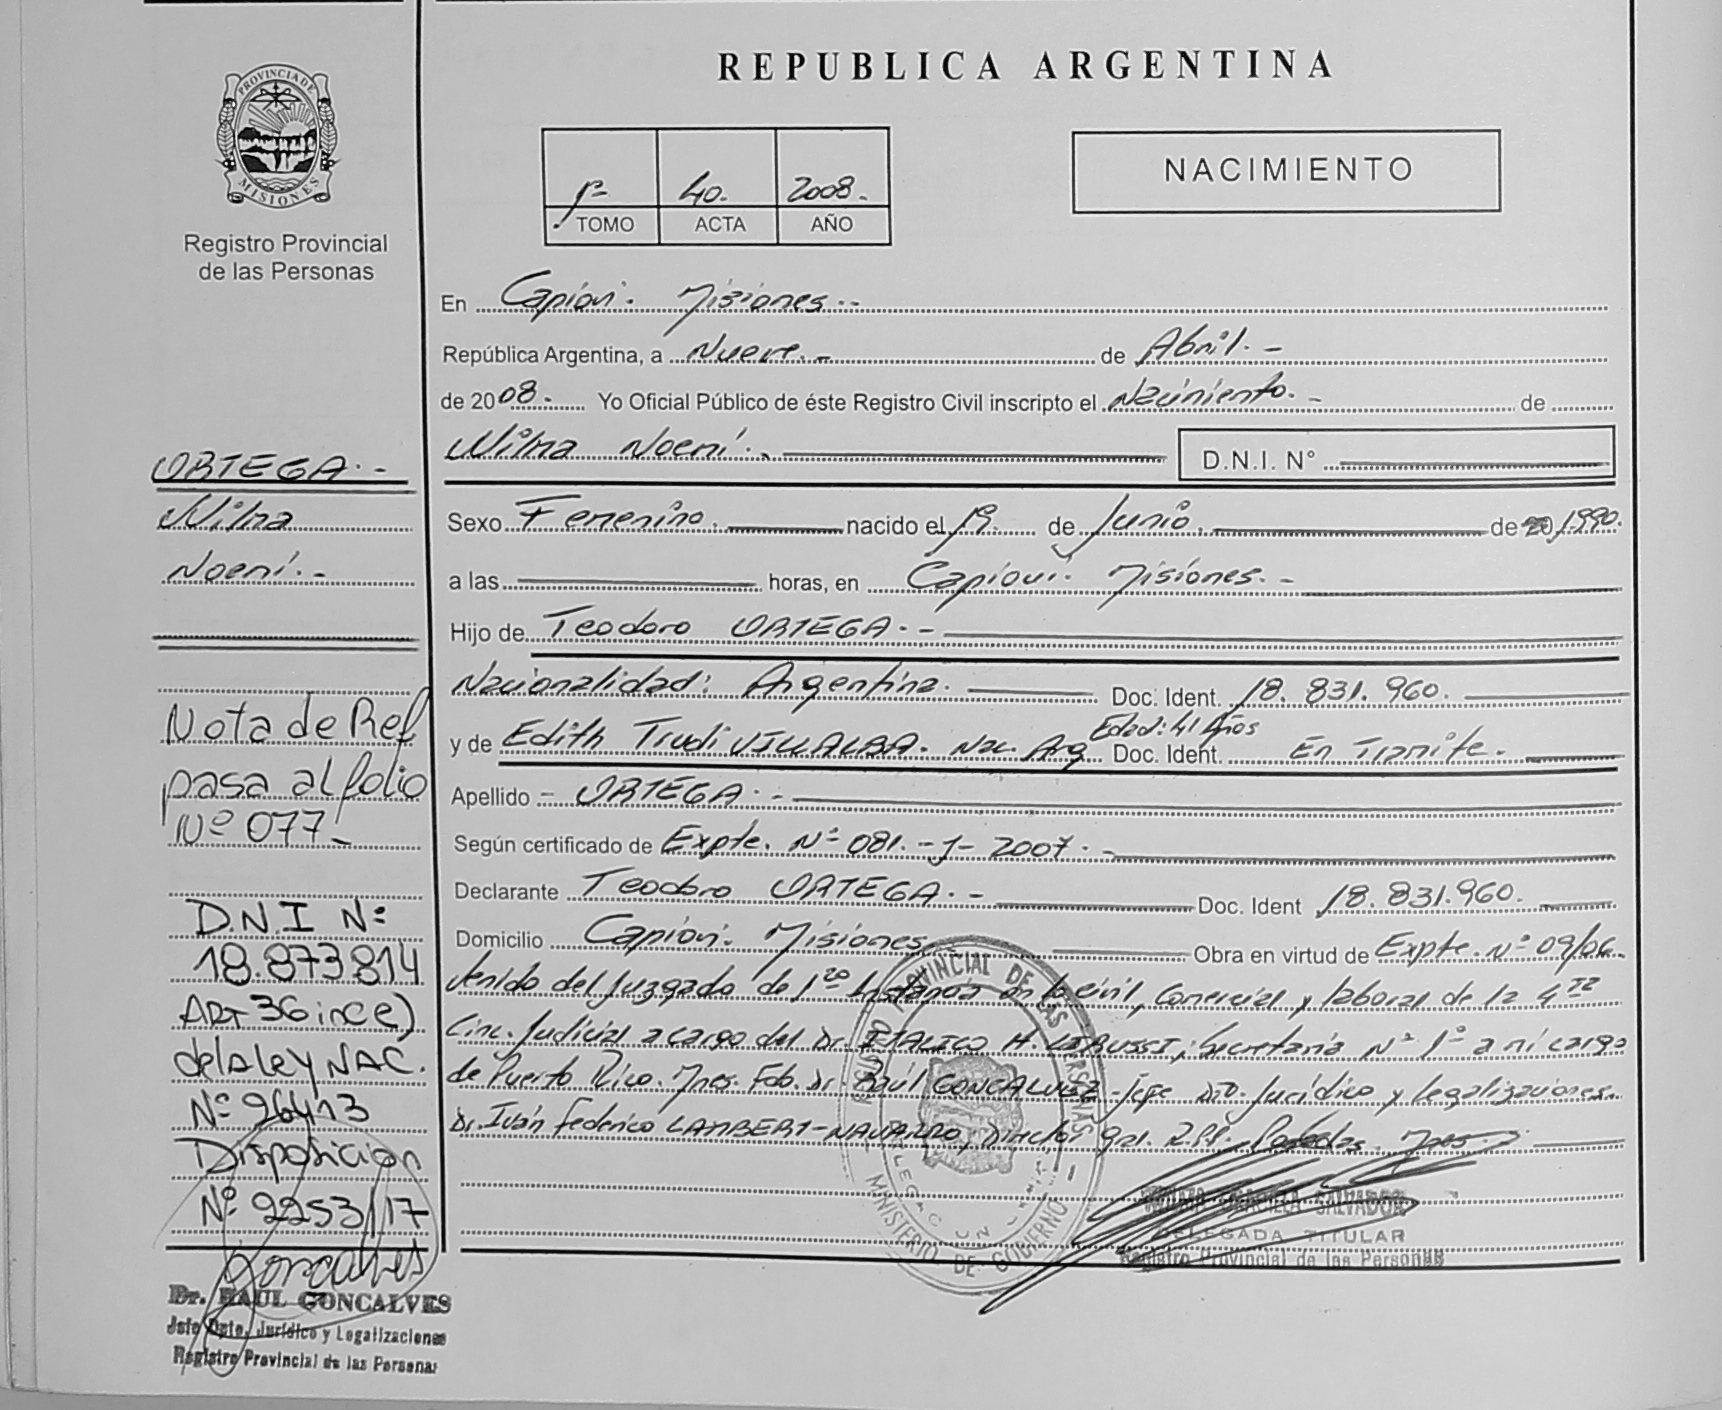 REPUBLICA ARGENTINA
PROVINCIA DE
MISIONES
Registro Provincial
de las Personas
1º 40. 2008.
TOMO ACTA AÑO
NACIMIENTO
En Capioví. Misiones.-
República Argentina, a Nueve.- de Abril.-
de 2008.- Yo Oficial Público de éste Registro Civil inscripto el Nacimiento.- de
Wilma Noemí.- D.N.I. N°
Sexo Femenino. nacido el 19. de Junio. de 20/1990.
a las horas, en Capioví. Misiones.-
Hijo de Teodoro ORTEGA.-
Nacionalidad: Argentina. Doc. Ident. 18.831.960.
Edad: 41 Años
y de Edith Trudi VILLALBA. Nac. Arg. Doc. Ident. En Tramite.
Apellido - ORTEGA.-
Según certificado de Expte. Nº 081.-J-2007.-
Declarante Teodoro ORTEGA.- Doc. Ident 18.831.960.
Domicilio Capioví. Misiones. Obra en virtud de Expte. Nº 09/06.
venido del Juzgado de 1ra Instancia en lo civil, Comercial y laboral de la 4ta
Circ. Judicial a cargo del Dr. ITALICO H. Secretaria Nº 1º a mi cargo
de Puerto Rico. Mnes. Fdo. Dr. Raúl GONCALVEZ - Jefe Dto. Jurídico y Legalizaciones.
Dr. Iván Federico LAMBERT-NAVARRO, Director Gral. R.P.P. Posadas. Mnes.
ORTEGA.-
Wilma
Noemí.-
Nota de Ref
pasa al folio
Nº 077-
D.N.I Nº
18.873.814
ART 36 inc e)
de la Ley NAC.
Nº 26413
Disposición
Nº 2253/17
Goncalves
Dr. RAUL GONCALVES
Jefe Dpto. Jurídico y Legalizaciones
Registro Provincial de las Personas
REGISTRO PROVINCIAL DE LAS PERSONAS
MINISTERIO DE GOBIERNO
GRACIELA SALVADOR
DELEGADA TITULAR
Registro Provincial de las Personas